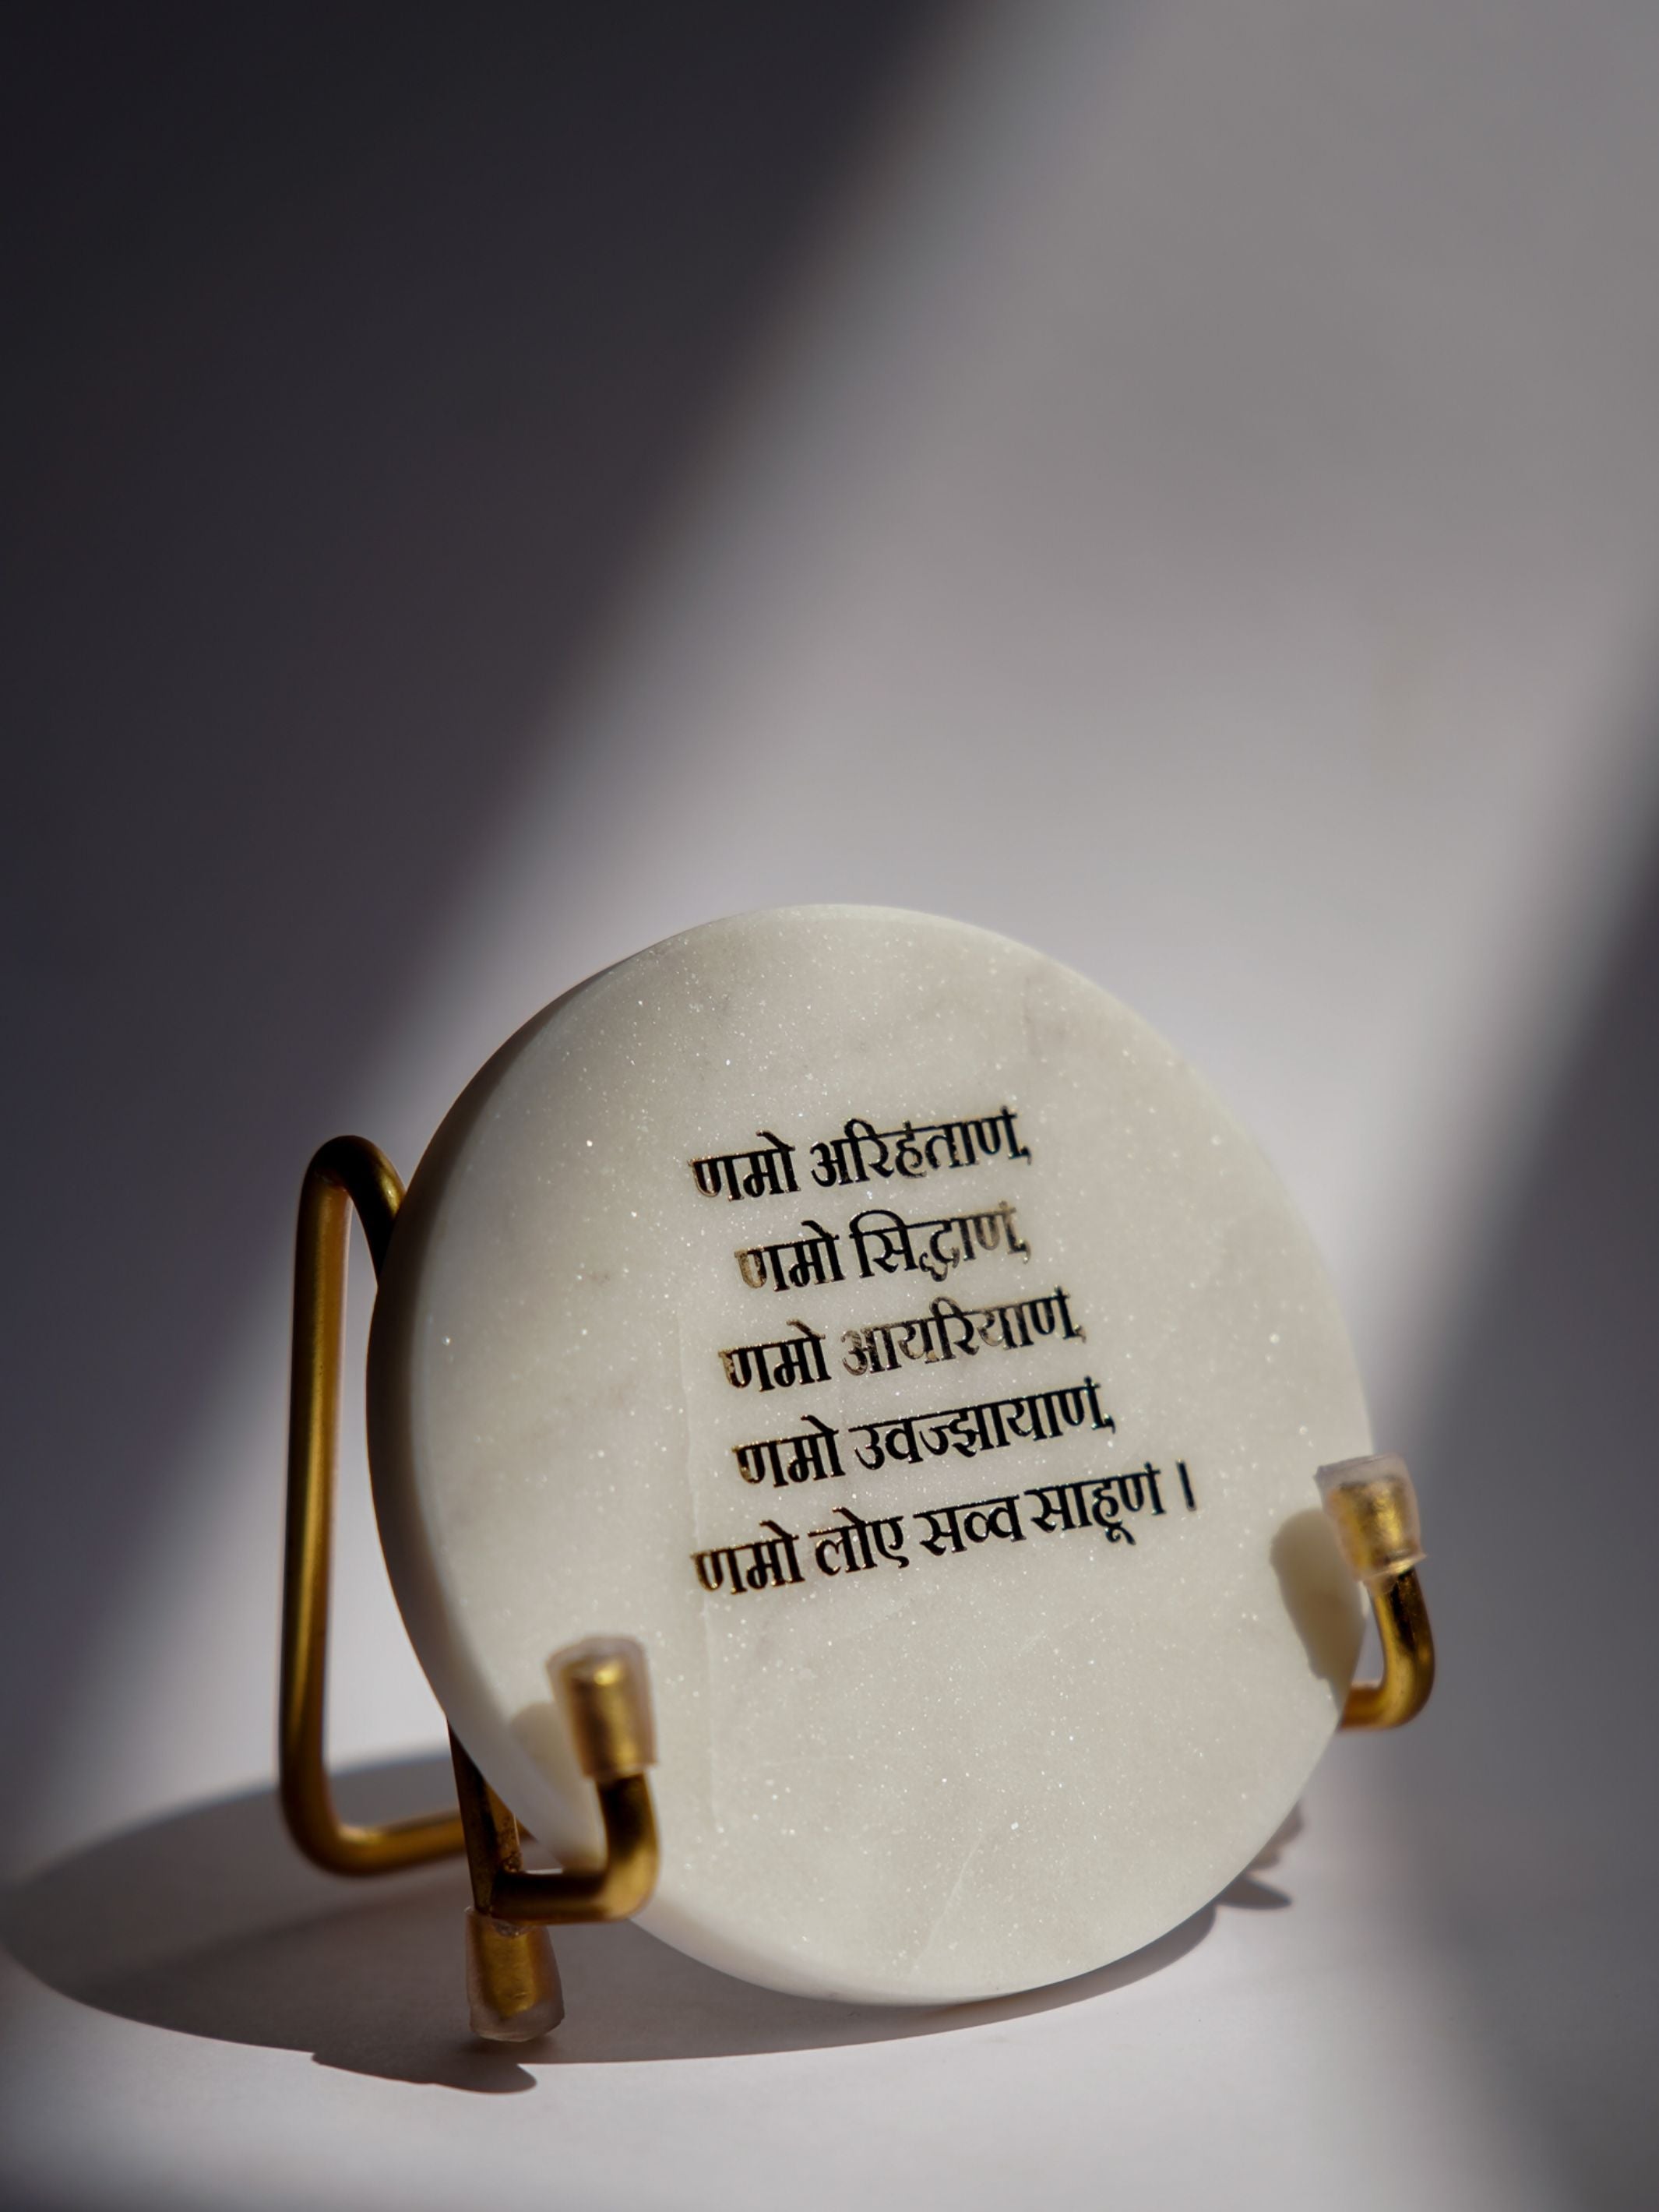 णमो अरिहंताणं,
णमो सिद्धाणं,
णमो आयरियाणं,
णमो उवज्झायाणं,
णमो लोए सव्व साहूणं ।